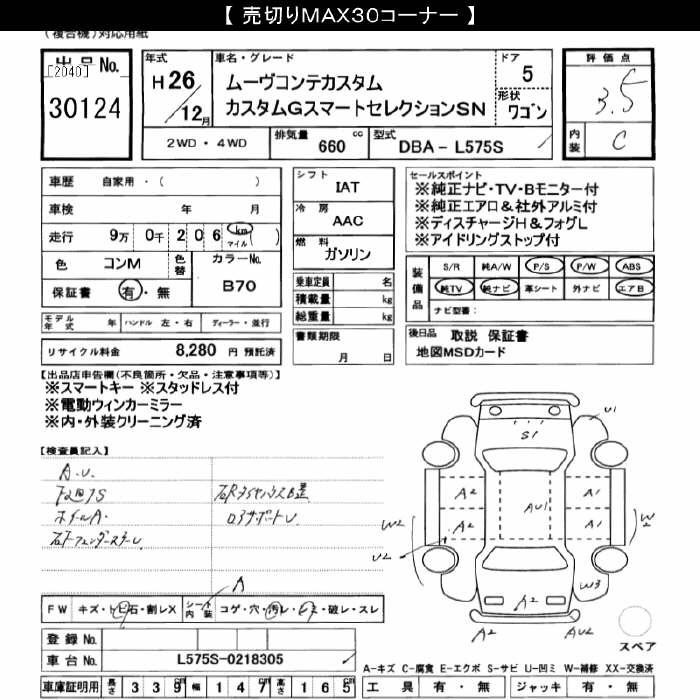 【 売切りMAX30コーナー 】
(複合機)対応用紙
出品No.
[2040]
30124
年式
H26
12月
車名・グレード
ムーヴコンテカスタム
カスタムGスマートセレクションSN
ドア
5
形状
ワゴン
評価点
3.5
内装
C
2WD・4WD
排気量
660 cc
型式
DBA - L575S
車歴 自家用・( )
車検 年 月
走行 9万 0千 2 0 6 km マイル ( )
色 コンM
色替
カラーNo.
B70
保証書 有・無
シフト
IAT
冷房
AAC
燃料
ガソリン
乗車定員 名
積載量 kg
総重量 kg
セールスポイント
※純正ナビ・TV・Bモニター付
※純正エアロ&社外アルミ付
※ディスチャージH&フォグL
※アイドリングストップ付
装備品
S/R 純A/W P/S P/W ABS
純TV 純ナビ 革シート 外ナビ エアB
ナビ型番:
モデル年式 年 ハンドル 左・右 ディーラー・並行
リサイクル料金 8,280 円 預託済
書類期限
月 日
後日品 取説 保証書
地図MSDカード
【出品店申告欄(不良箇所・欠品・注意事項等)】
※スマートキー ※スタッドレス付
※電動ウィンカーミラー
※内・外装クリーニング済
【検査員記入】
A.U.
ホイールA.
ロアサポートU
U1
S1
A2 AU1 A1
A2 A1
W2 W2
U2
W3
A2
A2 AU2
スペア
A
FW キズ・トビ石・割レX
シート内装 コゲ・穴・汚レ・シミ・破レ・スレ
登録No.
車台No. L575S-0218305
車庫証明用 長さ 3 3 9 幅 1 4 7 高さ 1 6 5
A-キズ C-腐食 E-エクボ S-サビ U-凹ミ W-補修 XX-交換済
工具 有・無 ジャッキ 有・無